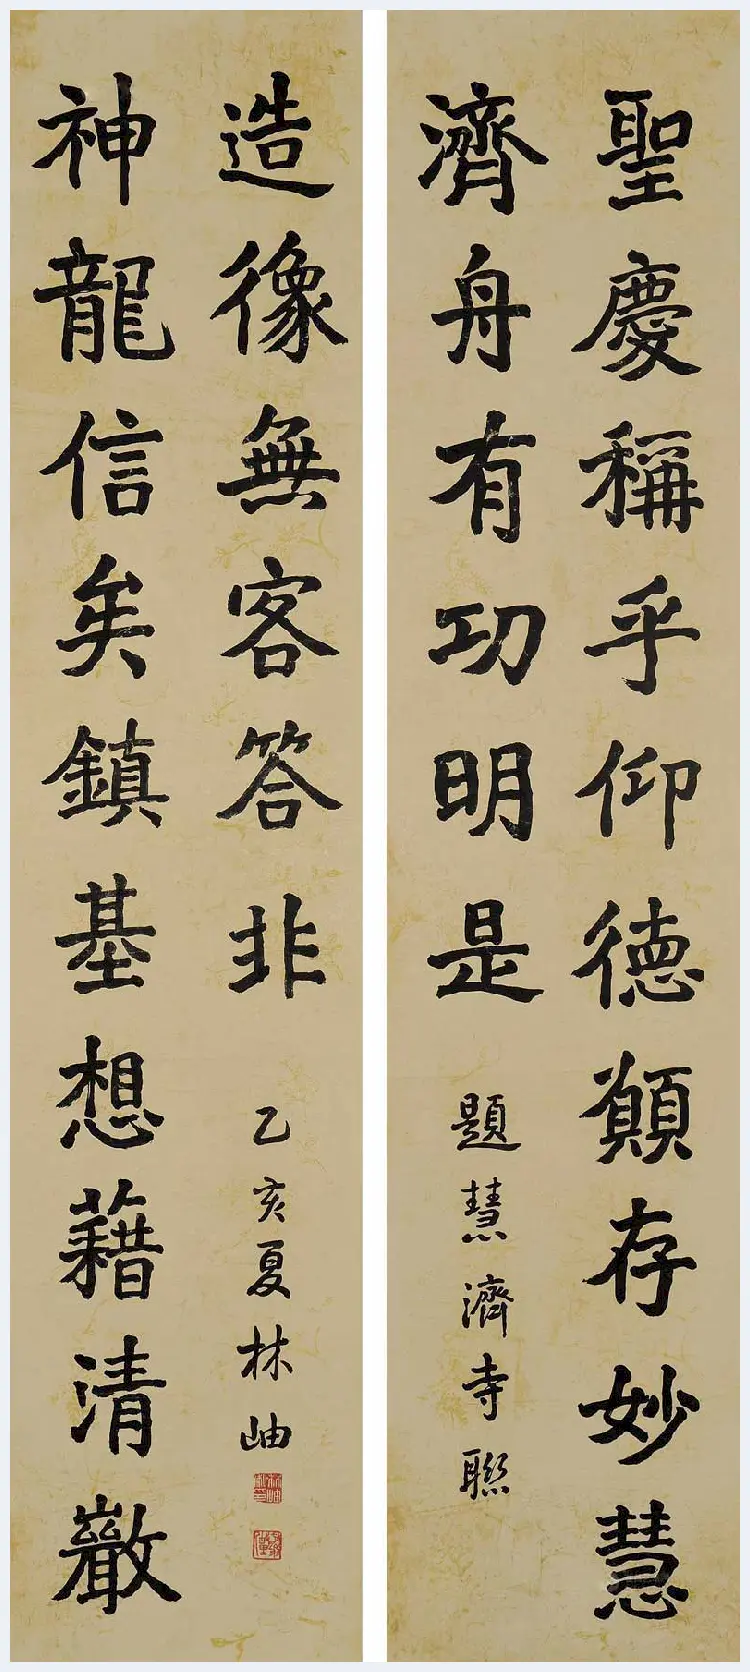 聖慶稱乎仰德願存妙慧
濟舟有功明是
題慧濟寺聯
神龍信矣鎮基想藉清嚴
造像無客答非
乙亥夏林岫